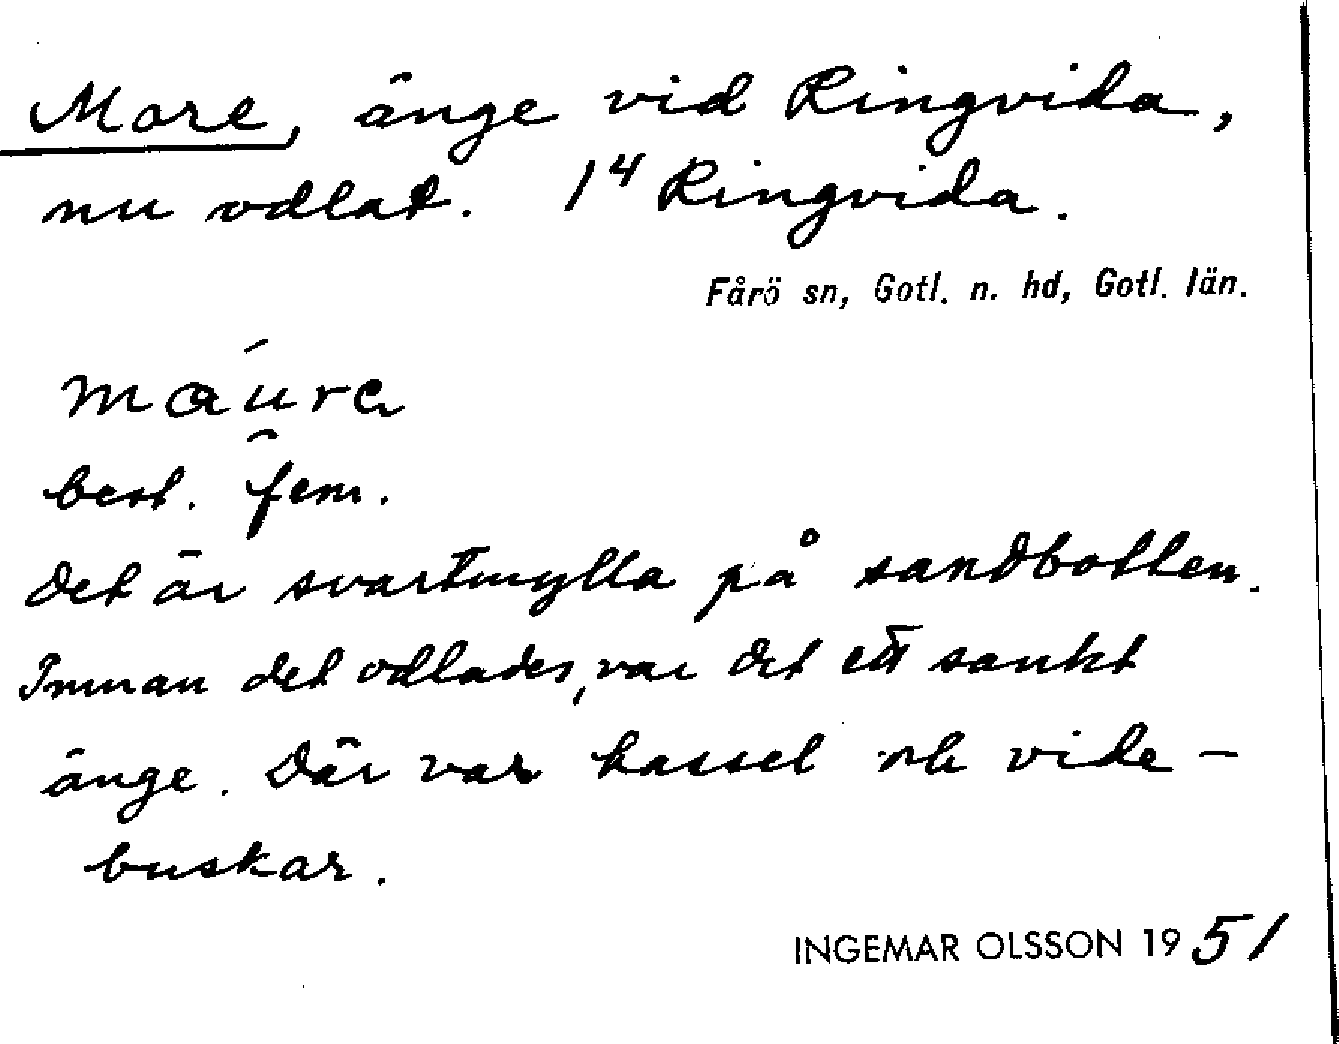 More, änge vid Ringvida,
nu odlat. 1⁴ Ringvida.
Fårö sn, Gotl. n. hd, Gotl. län.
máu̯ra
best. fem.
Det är svartmylla på sandbotten.
Innan det odlades, var det ett sankt
änge. Där var hassel och vide-
buskar.
INGEMAR OLSSON 1951